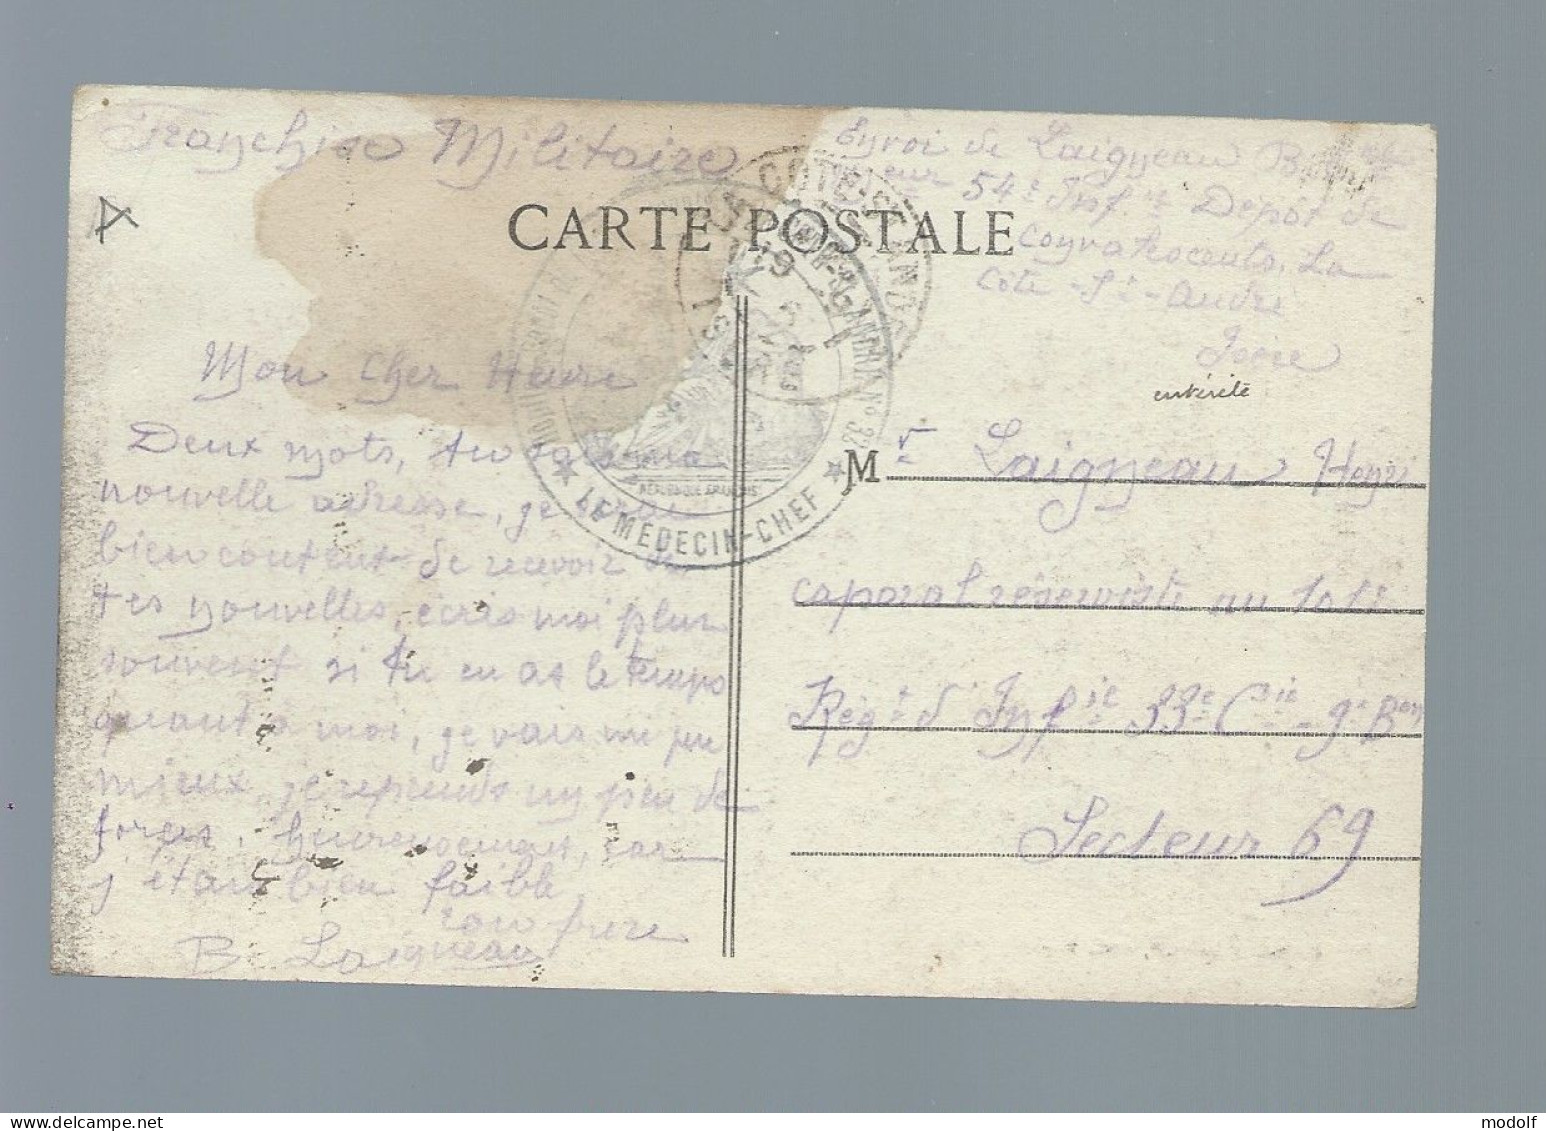 Franchise Militaire
Envoi de Laigneau
eur 54e Inf.ie Dépôt de
convalescents, La
Côte-St-André
Isère
CARTE POSTALE
LA COTE-ST-ANDRE
LE MÉDECIN-CHEF
RÉPUBLIQUE FRANÇAISE
entérite
Mon cher Henri
Deux mots, tu sais ma
nouvelle adresse, je serai
bien content de recevoir de
tes nouvelles, écris moi plus
souvent si tu en as le temps
quant à moi, je vais un peu
mieux, je reprends un peu de
forces, heureusement, car
j'étais bien faible
ton frere
B. Laigneau
Mr Laigneau Henri
caporal réserviste au
Régt d'Infie 33e Cie 9e Bon
Secteur 69
modolf